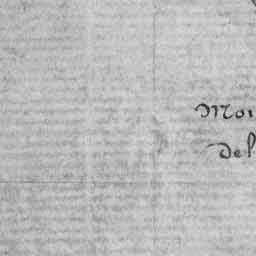 Moi
del